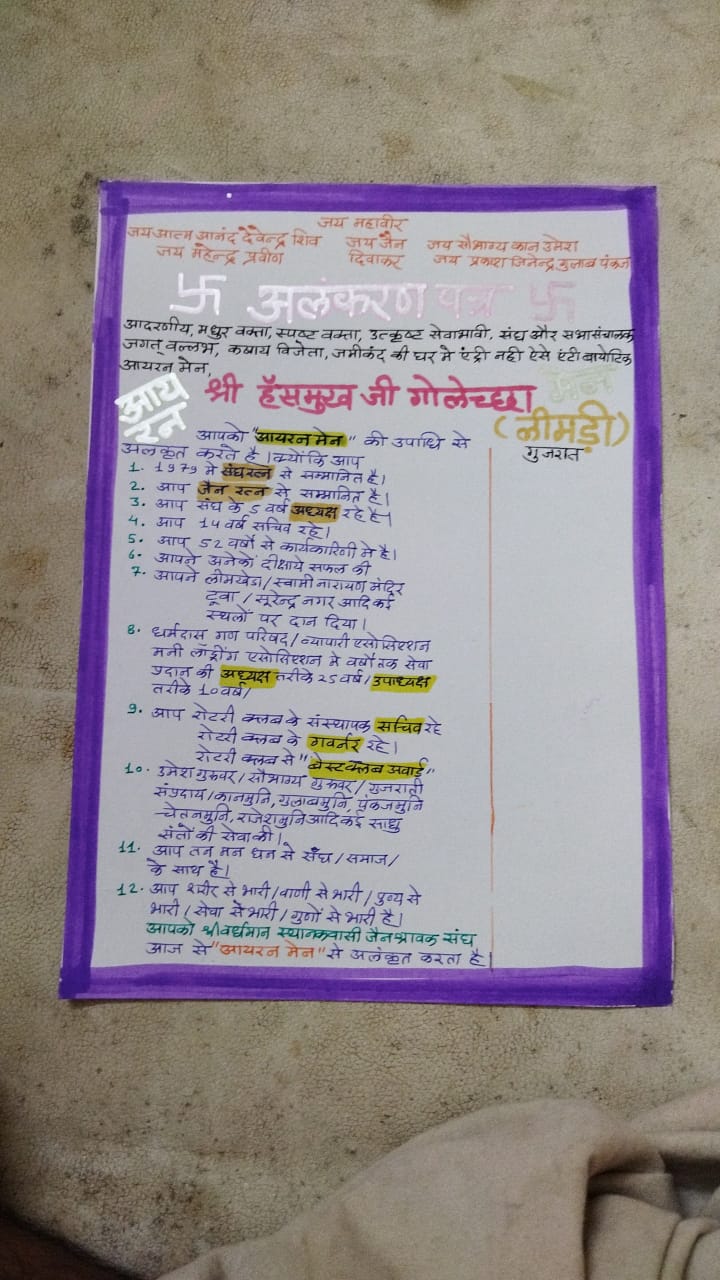 जय महावीर
जय आत्म आनंद देवेन्द्र शिव जय जैन जय सौभाग्य कान उमेश
जय महेन्द्र प्रवीण दिवाकर जय प्रकाश जिनेन्द्र गुलाब पंकज
卐 अलंकरण पत्र 卐
आदरणीय, मधुर वक्ता, स्पष्ट वक्ता, उत्कृष्ट सेवाभावी, संघ और सभासंचालक
जगत् वल्लभ, कषाय विजेता, जमीकंद की घर मे एंट्री नही ऐसे एंटी बायोटिक
आयरन मेन,
आय रन श्री हँसमुख जी गोलेच्छा मेन
(लीमड़ी)
गुजरात
आपको "आयरन मेन" की उपाधि से
अलंकृत करते है। क्योंकि आप
1. 1979 मे संघरत्न से सम्मानित है।
2. आप जैन रत्न से सम्मानित है।
3. आप संघ के 5 वर्ष अध्यक्ष रहे है।
4. आप 14 वर्ष सचिव रहे।
5. आप 52 वर्षो से कार्यकारिणी मे है।
6. आपने अनेकों दीक्षाये सफल की
7. आपने लीमखेडा/स्वामी नारायण मंदिर
टूवा/सूरेन्द्र नगर आदि कई
स्थलों पर दान दिया।
8. धर्मदास गण परिषद/व्यापारी एसोसिएशन
मनी लॉन्ड्रींग एसोसिएशन मे वर्षो तक सेवा
प्रदान की अध्यक्ष तरीके 25 वर्ष/उपाध्यक्ष
तरीके 10 वर्ष/
9. आप रोटरी क्लब के संस्थापक सचिव रहे
रोटरी क्लब के गवर्नर रहे।
रोटरी क्लब से "बेस्ट क्लब अवार्ड"
10. उमेश गुरुवर/सौभाग्य गुरुवर/गुजराती
संप्रदाय/कानमुनि, गुलाबमुनि, पंकजमुनि
चेतनमुनि, राजेशमुनि आदि कई साधु
संतों की सेवा की।
11. आप तन मन धन से संघ/समाज/
के साथ है।
12. आप शरीर से भारी/वाणी से भारी/पुण्य से
भारी/सेवा से भारी/गुणों से भारी है।
आपको श्री वर्धमान स्थानकवासी जैन श्रावक संघ
आज से "आयरन मेन" से अलंकृत करता है।